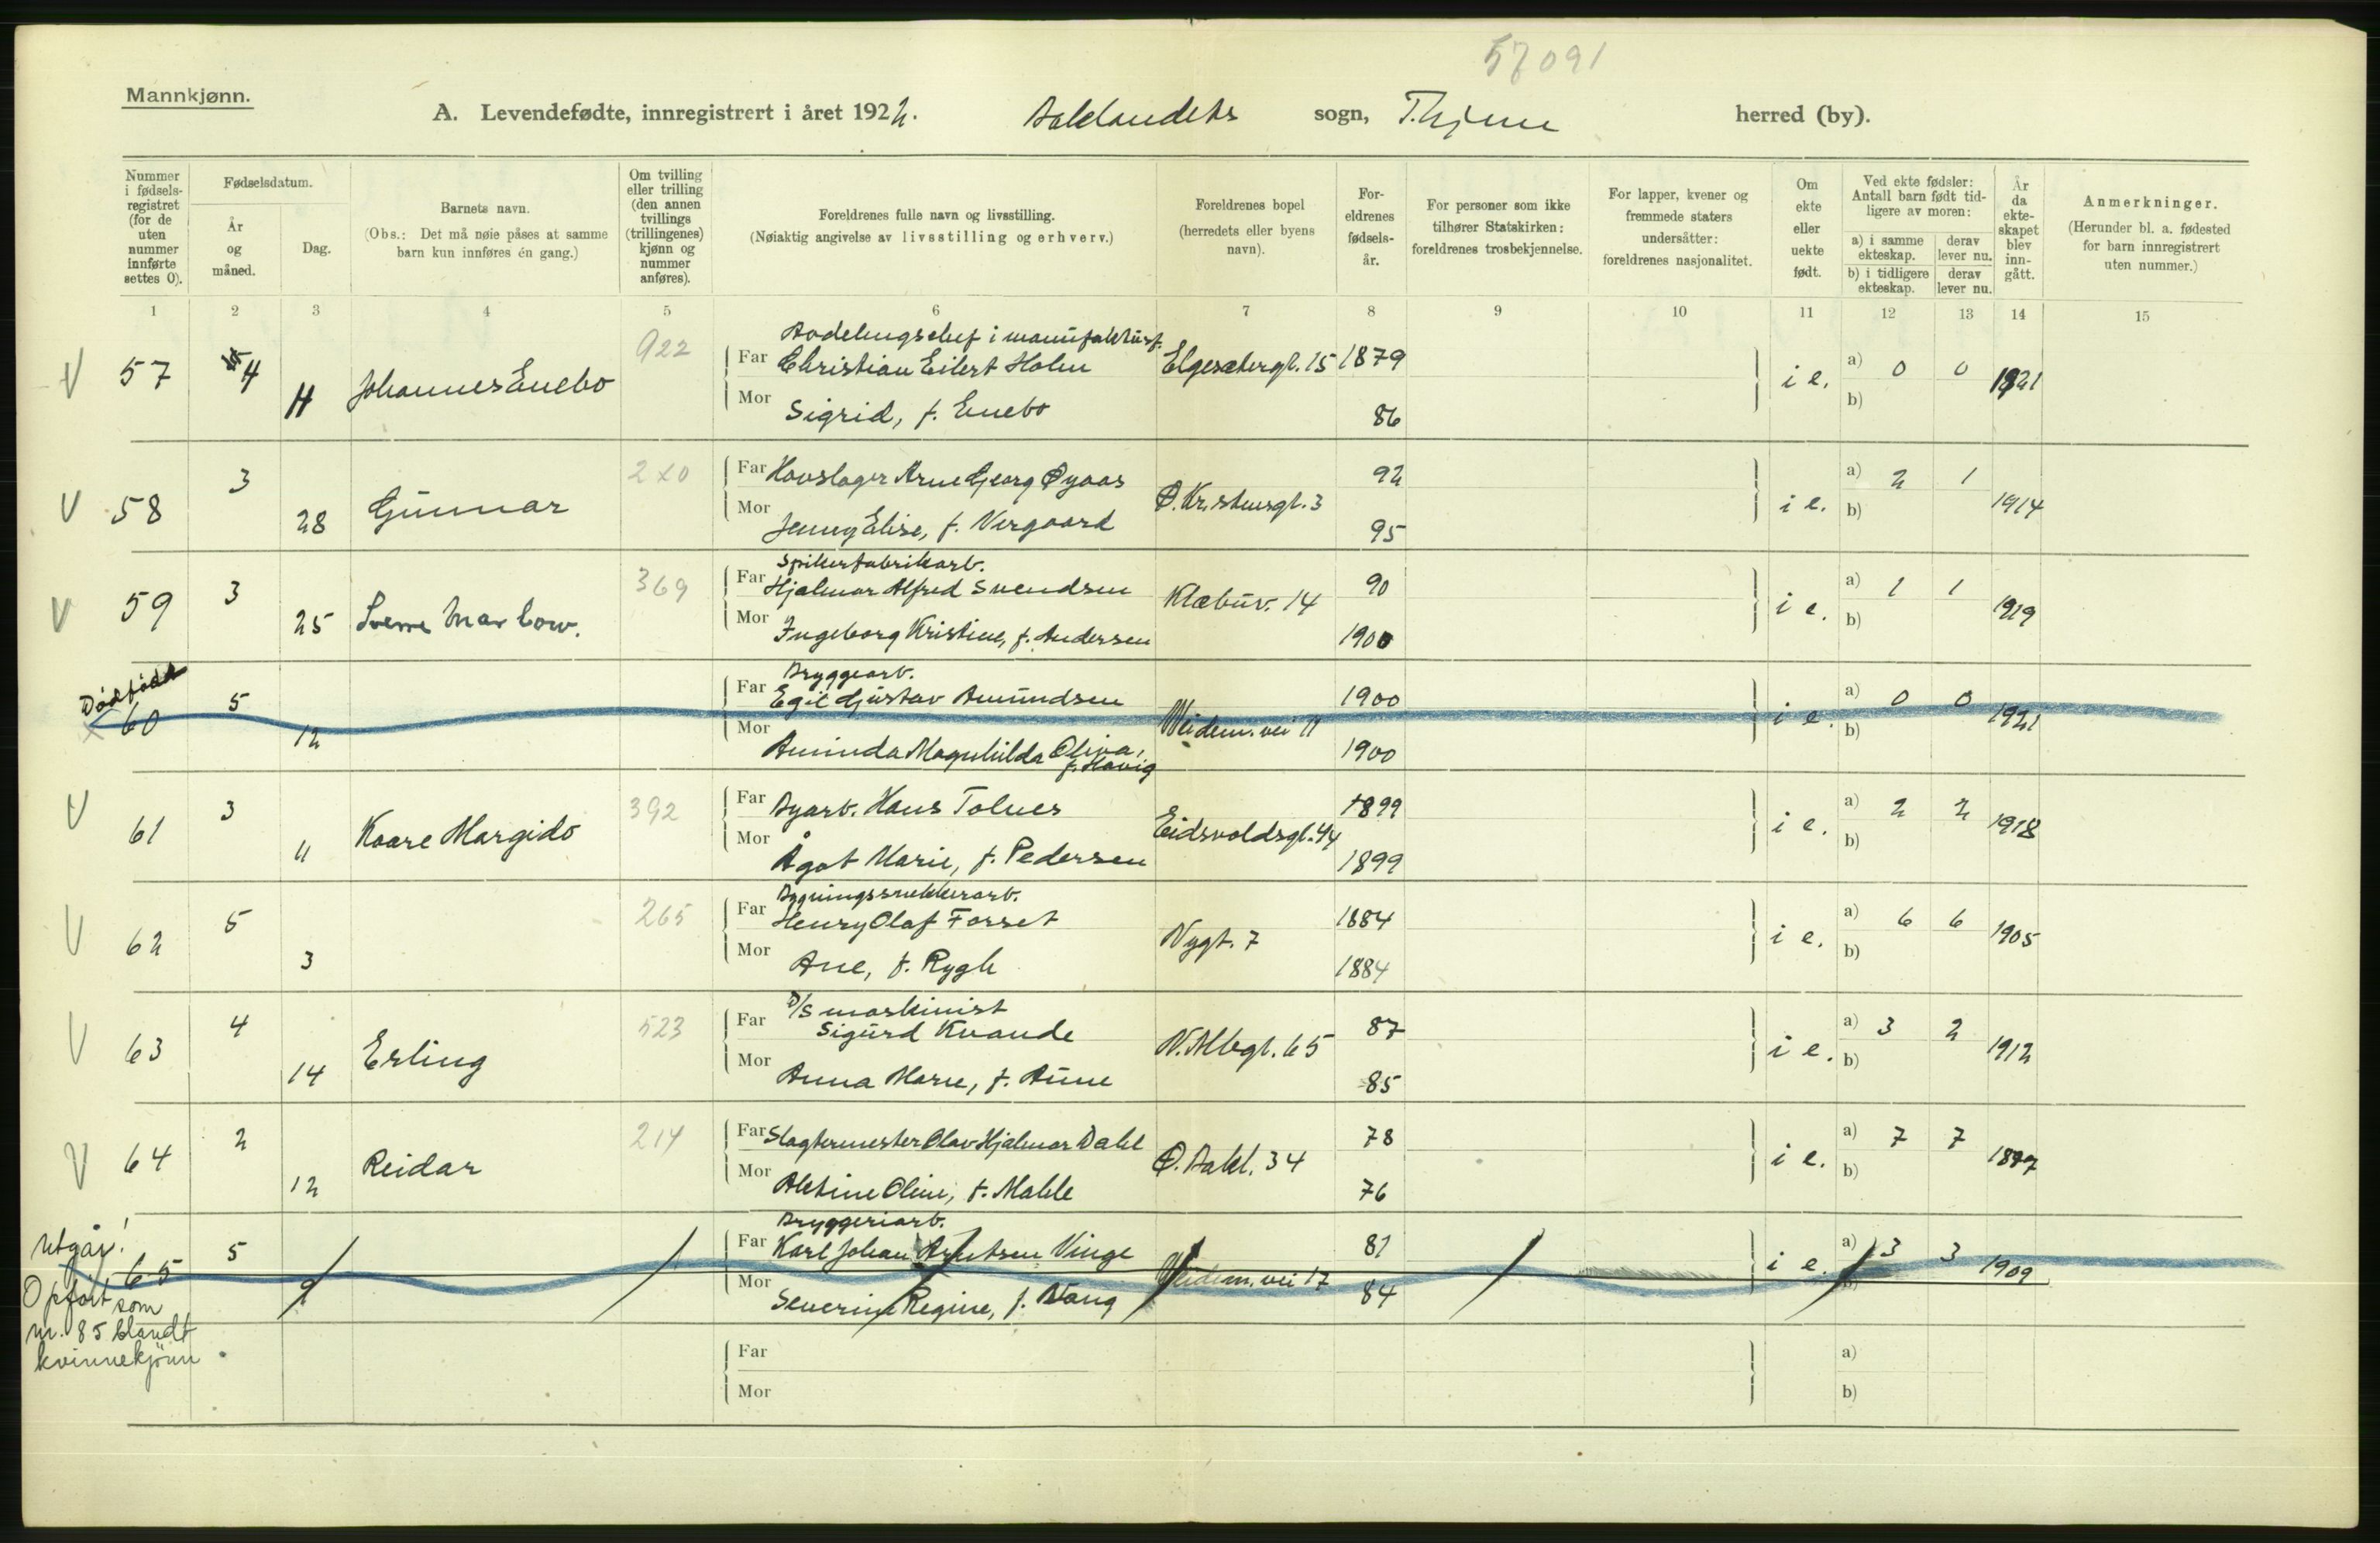 57091
Mannkjønn.
A. Levendefødte, innregistrert i året 1922. Baklandets sogn, T.hjem herred (by).
Nummer i fødselsregistret (for de uten nummer innførte settes 0).
Fødselsdatum.
År og måned.
Dag.
Barnets navn.
(Obs.: Det må nøie påses at samme barn kun innføres én gang.)
Om tvilling eller trilling (den annen tvillings (trillingenes) kjønn og nummer anføres).
Foreldrenes fulle navn og livsstilling.
(Nøiaktig angivelse av livsstilling og erhverv.)
Foreldrenes bopel (herredets eller byens navn).
Foreldrenes fødselsår.
For personer som ikke tilhører Statskirken: foreldrenes trosbekjennelse.
For lapper, kvener og fremmede staters undersåtter: foreldrenes nasjonalitet.
Om ekte eller uekte født.
Ved ekte fødsler: Antall barn født tidligere av moren:
a) i samme ekteskap. derav lever nu.
b) i tidligere ekteskap. derav lever nu.
År da ekteskapet blev inngått.
Anmerkninger.
(Herunder bl. a. fødested for barn innregistrert uten nummer.)
1 2 3 4 5 6 7 8 9 10 11 12 13 14 15
V 57 4 11 Johannes Enebo 922
Avdelingschef i manufakturf.
Far Christian Eilert Holm Elgesætergt. 15 1879 i e. a) 0 0 1921
Mor Sigrid, f. Enebo 86 b)
V 58 3 28 Gunnar 220
Far Hovslager Arne Georg Øyaas Ø. Kristensgt. 3 92 i e. a) 2 1 1914
Mor Jenny Elise, f. Vergaard 95 b)
V 59 3 25 Sverre Marlow. 369
Spikerfabrikarb.
Far Hjalmar Alfred Svendsen Klæbuv. 14 90 i e. a) 1 1 1919
Mor Ingeborg Kristine, f. Andersen 1900 b)
Dødfødt
60 5 12
Bryggearb.
Far Egil Gustav Amundsen Weidem. vei 11 1900 i e. a) 0 0 1921
Mor Aminda Magnhilda Oliva, f. Havig 1900 b)
V 61 3 11 Kaare Margido 392
Far Byarb. Hans Tolnes Eidsvoldsgt. 44 1899 i e. a) 2 2 1918
Mor Ågot Marie, f. Pedersen 1899 b)
V 62 5 3 265
Bygningssnekkerarb.
Far Henry Olaf Forset Nygt. 7 1884 i e. a) 6 6 1905
Mor Ane, f. Rygh 1884 b)
V 63 4 14 Erling 523
D/S maskinist
Far Sigurd Kvande N. Allegt. 65 87 i e. a) 3 2 1912
Mor Anna Marie, f. Aune 85 b)
V 64 2 12 Reidar 214
Far Slagtermester Olav Hjalmar Dahl Ø. Bakl. 34 78 i e. a) 7 7 1897
Mor Aletine Oline, f. Mahle 76 b)
Utgår!
65 5 9
Bryggeriarb.
Far Karl Johan Arntsen Vinge Weidem. vei 17 81 i e. a) 3 3 1909
Mor Severine Regine, f. Vang 84 b)
Opført som
nr. 85 blandt
kvinnekjønn.
Far a)
Mor b)